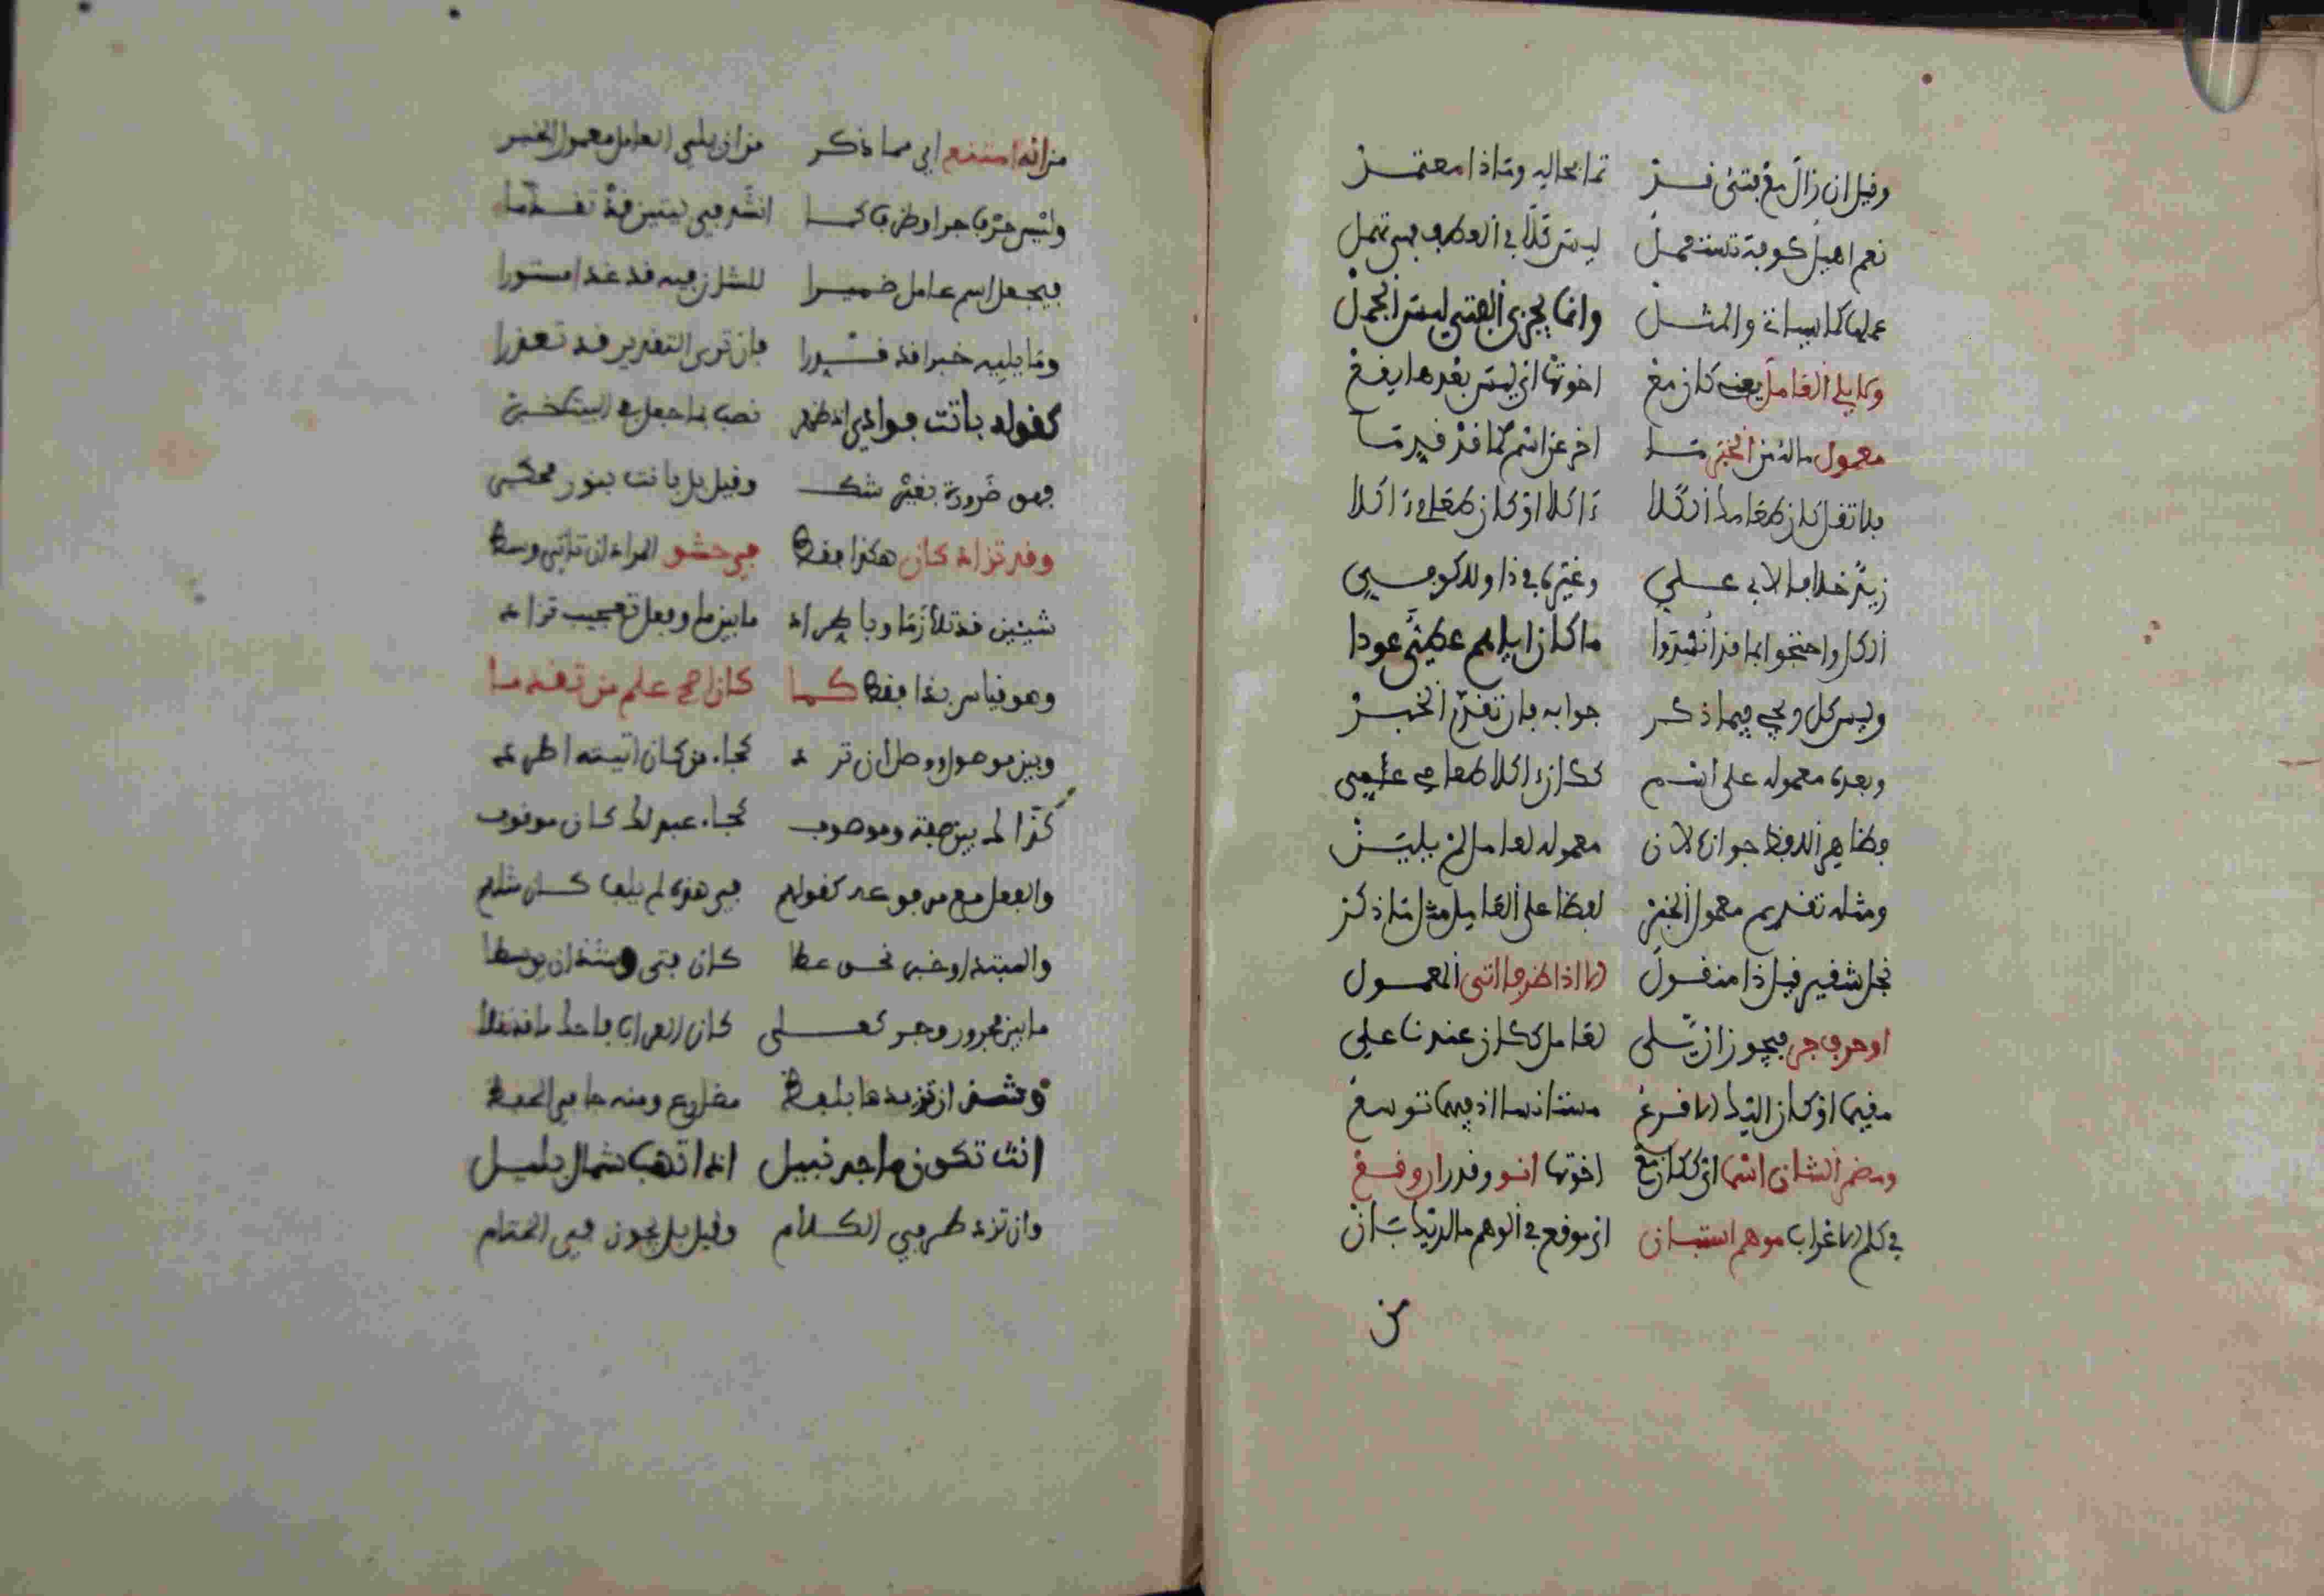 وقيل ان زال مع فتئ قر تما بحاليه وماذا معتمر
نعم اهل كوفة تستعمل ليس في العطف فهي تهمل
عملها كما والمثل وانما يجزي الفتى ليس الجمل
ولا يلي العامل يعني كان مع اخوتها اذ ليس بعدها يقع
معمول ما له من الخبر ما اخر عن اسم كما قد قدما
فلا تقل كان طعامك اكلا او كان طعامك اكلا
زيد خلافا لابي علي وغيره في ذا وللكوفي
اذ كل واحتجوا بما قد انشدوا ما كان اياهم عطية عودا
وليس كل وجه فيما ذكر جوابه فان تقدم الخبر
وبعده معموله على اسم ككان اكلا طعامي عمي
فظاهر اللفظ جوازه لان معموله لعامل لم يلين
ومثله تقديم معمول الخبر لفظا على العامل مثل ما ذكر
نجل شقير قيل ذا منقول الا اذا ظرفا اتى المعمول
او حرف جر فيجوز ان يلي لعامل ككان عندنا علي
مقيما او كان الينا الاقرع مستانسا اذ فيهما توسع
ومضمر الشان اسما اي ككان مع اخوتها انو وقدر ان وقع
في كلم الاعراب موهم استبان اي موقع في الوهم ما لديك بان
من
من انه امتنع اي مما ذكر من ان يلي العامل معمول الخبر
وليس حرفا جرا وظرفا كما انشد في بيتين قد تقدما
فيجعل اسم عامل ضميرا للشان فيه قد غدا مستورا
وما يليه خبرا قد قررا فان ترى التقدير قد تعذرا
كقوله باتت فؤادي اذ ظهر نصب ما جعل في البيت كخبر
فهو ضرورة بغير شك وقيل بل بانت بنور محكي
وقد تزاد كان هكذا فقط في حشو المراد ان تاتي وسط
شيئين قد تلازما وباطراد ما بين ما وفعل تعجب تزاد
وهو قياس بذا فقط كما كان اصح علم من تقدما
وبين موصول ووصل ان ترد كجاء من كان اتيته اطرد
كذا له بين صفة وموصوف كجاء عبد لك كان موقوف
والفعل مع مرفوعه كقولهم في هذه لم يلف كان مثلهم
والمبتدا وخبر نحو عطا كان فتى وشذ ان يوسطا
ما بين مجرور وجر كعلى كان العراب فاحفظ ما قد نقلا
وشذ ان تزيدها بلفظ مضارع ومنه ما في الحفظ
انت تكون ماجد نبيل اذا تهب شمال بليل
وان تزد طرفي الكلام وقيل بل يجوز في الختام